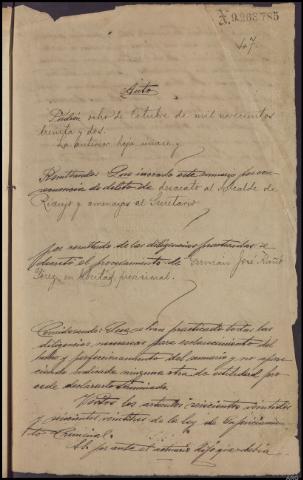 A.9.268.785
47.
Auto
Padrón ocho de Octubre de mil novecientos
treinta y dos.
La anterior hoja únase y
Resultando: Que incoado este sumario por con-
secuencia de delito de desacato al Alcalde de
Rianjo y amenazas al Secretario
por resultado de las diligencias practicadas se
decretó el procesamiento de Germán José
Pérez en libertad provisional.
Considerando: Que se han practicado todas las
diligencias necesarias para esclarecimiento del
hecho y perfeccionamiento del sumario y no apa-
reciendo indicada ninguna otra de utilidad pro-
cede declararlo terminado.
Vistos los artículos seiscientos veintidós
y seiscientos veintitrés de la ley de Enjuiciamien-
to Criminal.
S.S. por ante el actuario dijo: que debía